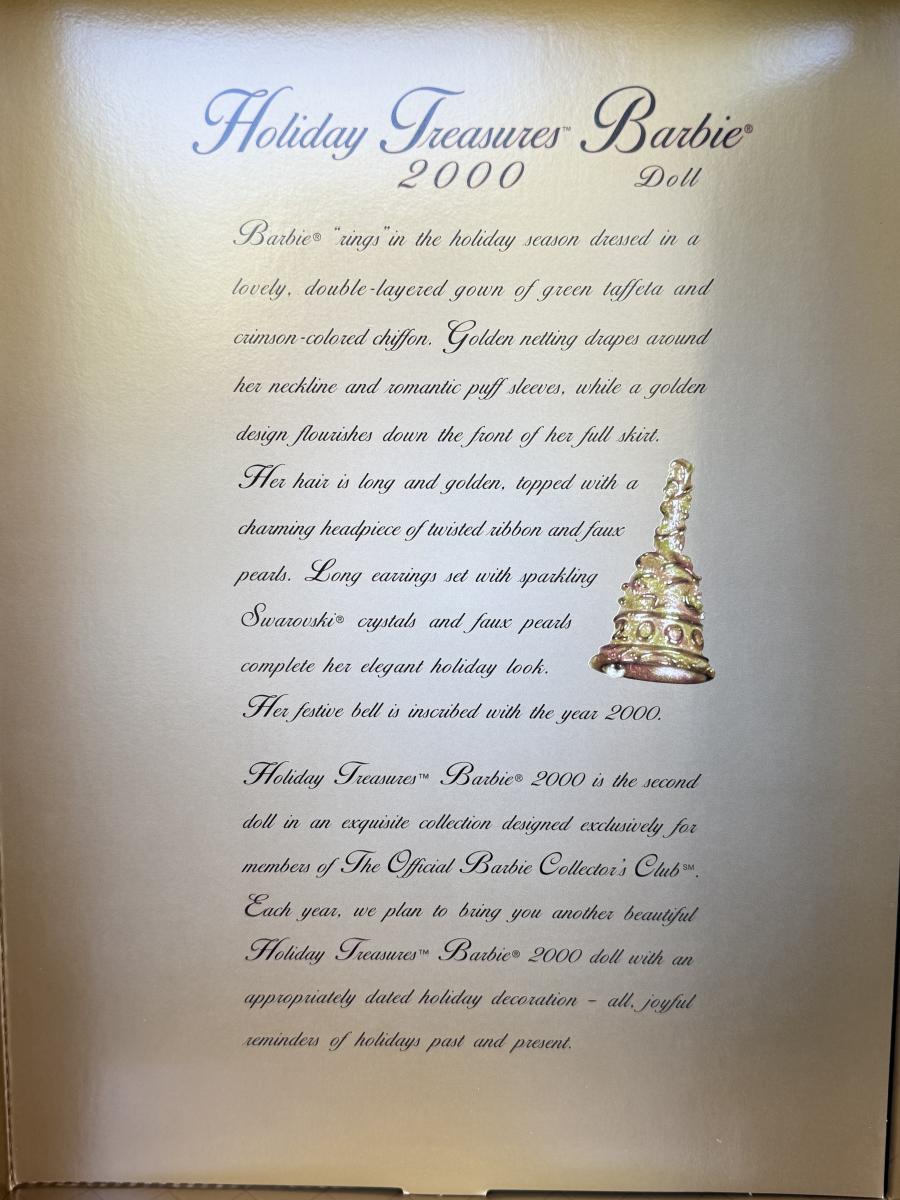 Holiday Treasures™ Barbie®
2000 Doll
Barbie® "rings" in the holiday season dressed in a
lovely, double-layered gown of green taffeta and
crimson-colored chiffon. Golden netting drapes around
her neckline and romantic puff sleeves, while a golden
design flourishes down the front of her full skirt.
Her hair is long and golden, topped with a
charming headpiece of twisted ribbon and faux
pearls. Long earrings set with sparkling
Swarovski® crystals and faux pearls
complete her elegant holiday look.
Her festive bell is inscribed with the year 2000.
2000
Holiday Treasures™ Barbie® 2000 is the second
doll in an exquisite collection designed exclusively for
members of The Official Barbie Collector's Club℠.
Each year, we plan to bring you another beautiful
Holiday Treasures™ Barbie® 2000 doll with an
appropriately dated holiday decoration – all, joyful
reminders of holidays past and present.